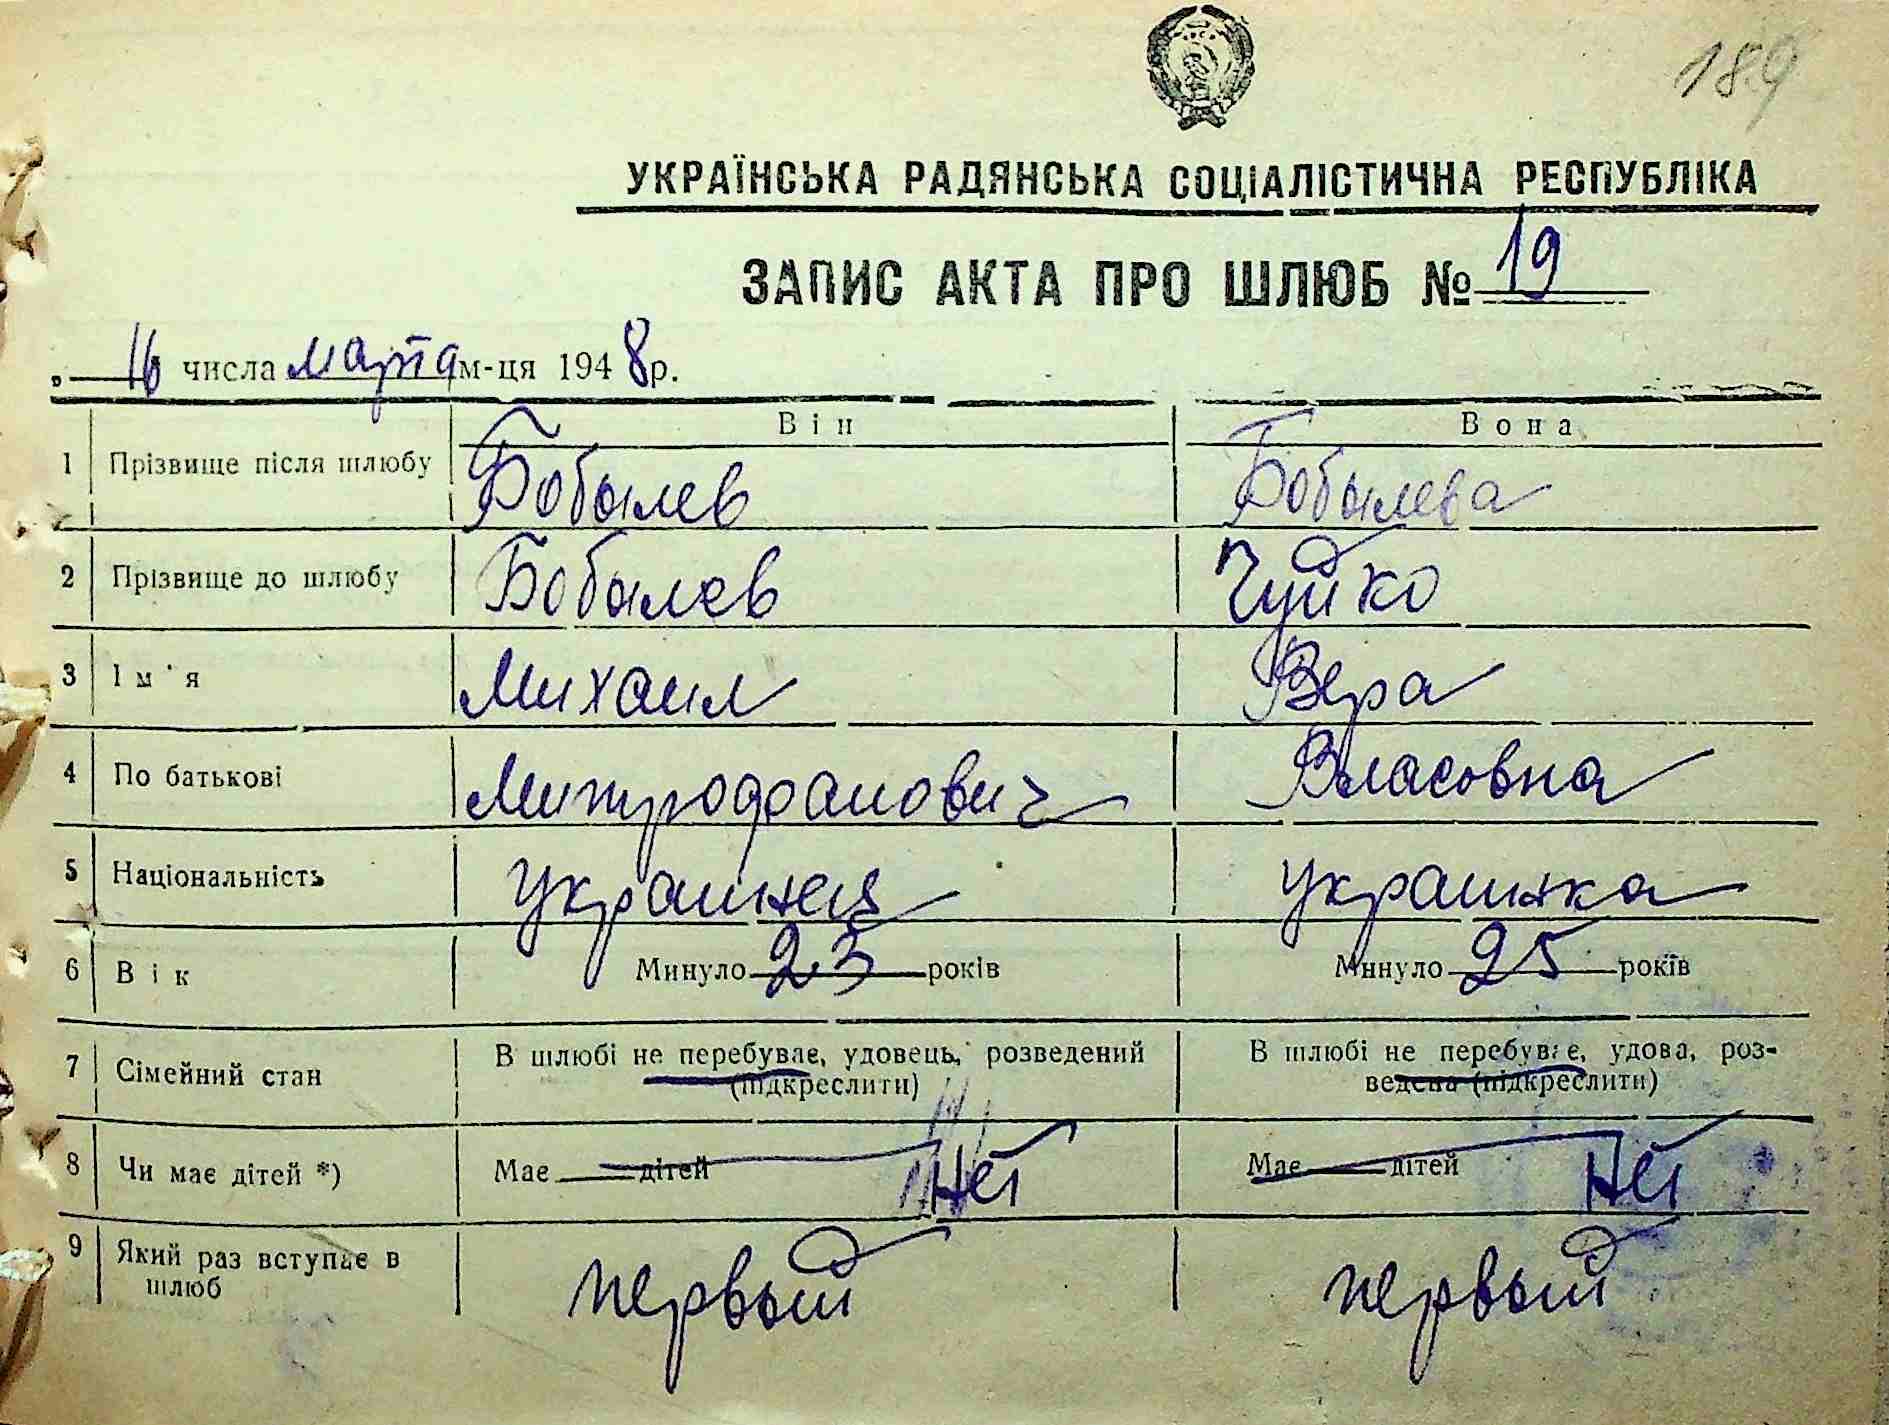 189
УКРАЇНСЬКА РАДЯНСЬКА СОЦІАЛІСТИЧНА РЕСПУБЛІКА
ЗАПИС АКТА ПРО ШЛЮБ № 19
„ 16 числа марта м-ця 1948 р.
Він Вона
1 Прізвище після шлюбу Бобылев Бобылева
2 Прізвище до шлюбу Бобылев Чуйко
3 Ім'я Михаил Вера
4 По батькові Митрофанович Власовна
5 Національність украинец украинка
6 Вік Минуло 23 років Минуло 25 років
7 Сімейний стан В шлюбі не перебуває, удовець, розведений В шлюбі не перебуває, удова, роз-
(підкреслити) ведена (підкреслити)
8 Чи має дітей *) Має дітей Нет Має дітей Нет
9 Який раз вступає в
шлюб первый первый